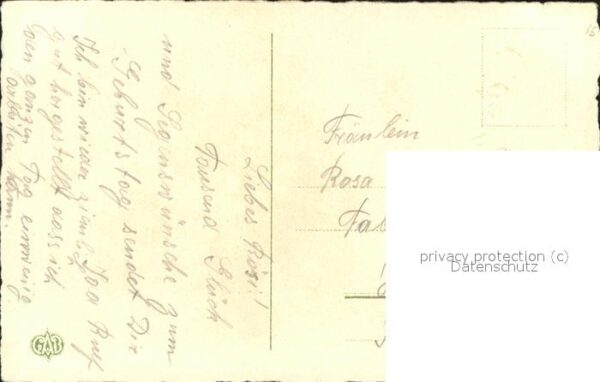 Liebes Rösi!
Tausend Glück
und Segenswünsche zum
Geburtstag sendet Dir
Ida Ruef
Ich bin wieder ziml.
gut hergestellt dass ich
den ganzen Tag ein wenig
arbeiten kann.
Fräulein
Rosa
Fa
privacy protection (c)
Datenschutz
GAB